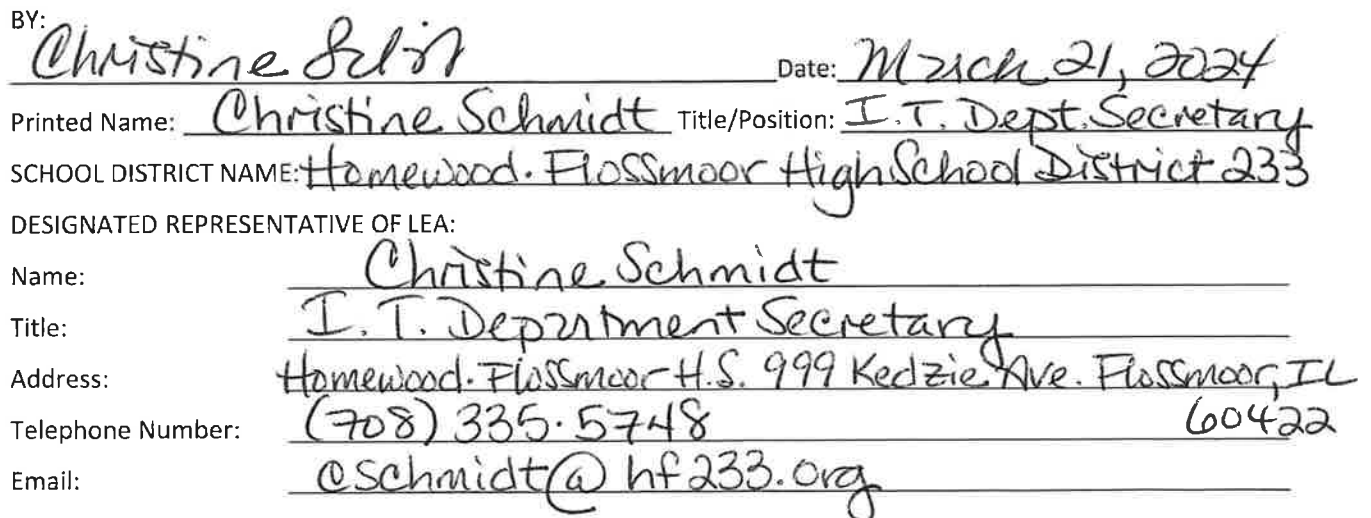 BY:
Christine Date: March 21, 2024
Printed Name: Christine Schmidt Title/Position: I.T. Dept. Secretary
SCHOOL DISTRICT NAME: Homewood-Flossmoor High School District 233
DESIGNATED REPRESENTATIVE OF LEA:
Name: Christine Schmidt
Title: I.T. Department Secretary
Address: Homewood-Flossmoor H.S. 999 Kedzie Ave. Flossmoor, IL
Telephone Number: (708) 335-5748 60422
Email: cschmidt@hf233.org